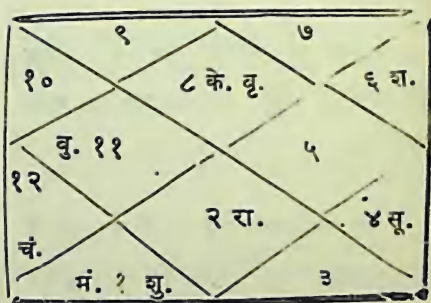 ९ ७
१० ८ के. वृ. ६ श.
वु. ११ ५
१२
२ रा. ४ सू.
चं.
मं. १ शु. ३